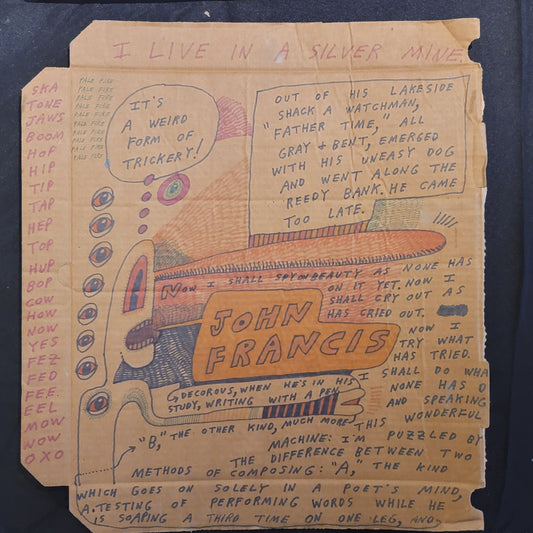 I LIVE IN A SILVER MINE.
SKA
TONE
JAWS
BOOM
HOP
HIP
TIP
TAP
HEP
TOP
HUP
BOP
COW
HOW
NOW
YES
FEZ
FED
FEE
EEL
MOW
WOW
OXO
PALE FIRE
PALE FIRE
PALE FIRE
PALE FIRE
PALE FIRE
PALE FIRE
PALE FIRE
PALE FIRE
PALE FIRE
IT'S
A WEIRD
FORM OF
TRICKERY!
OUT OF HIS LAKESIDE
SHACK A WATCHMAN,
"FATHER TIME," ALL
GRAY & BENT, EMERGED
WITH HIS UNEASY DOG
AND WENT ALONG THE
REEDY BANK. HE CAME
TOO LATE.
NOW I SHALL SPY ON BEAUTY AS NONE HAS
ON IT YET. NOW I
SHALL CRY OUT AS
HAS CRIED OUT.
NOW I
TRY WHAT
HAS TRIED.
I SHALL DO WHA
NONE HAS D
AND SPEAKING
THIS WONDERFUL
MACHINE: I'M PUZZLED BY
THE DIFFERENCE BETWEEN TWO
METHODS OF COMPOSING: "A," THE KIND
WHICH GOES ON SOLELY IN A POET'S MIND,
A. TESTING OF PERFORMING WORDS WHILE HE
IS SOAPING A THIRD TIME ON ONE LEG, AND,
"B," THE OTHER KIND, MUCH MORE
DECOROUS, WHEN HE'S IN HIS
STUDY, WRITING WITH A PEN.
JOHN
FRANCIS